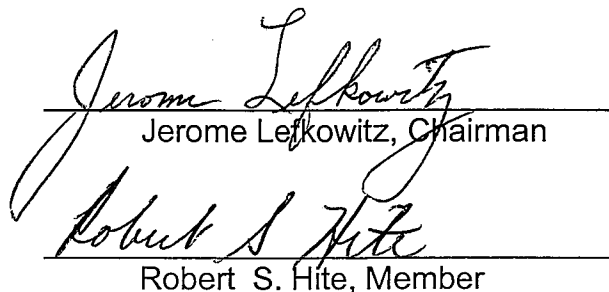 Jerome Lefkowitz
Jerome Lefkowitz, Chairman
Robert S Hite
Robert S. Hite, Member